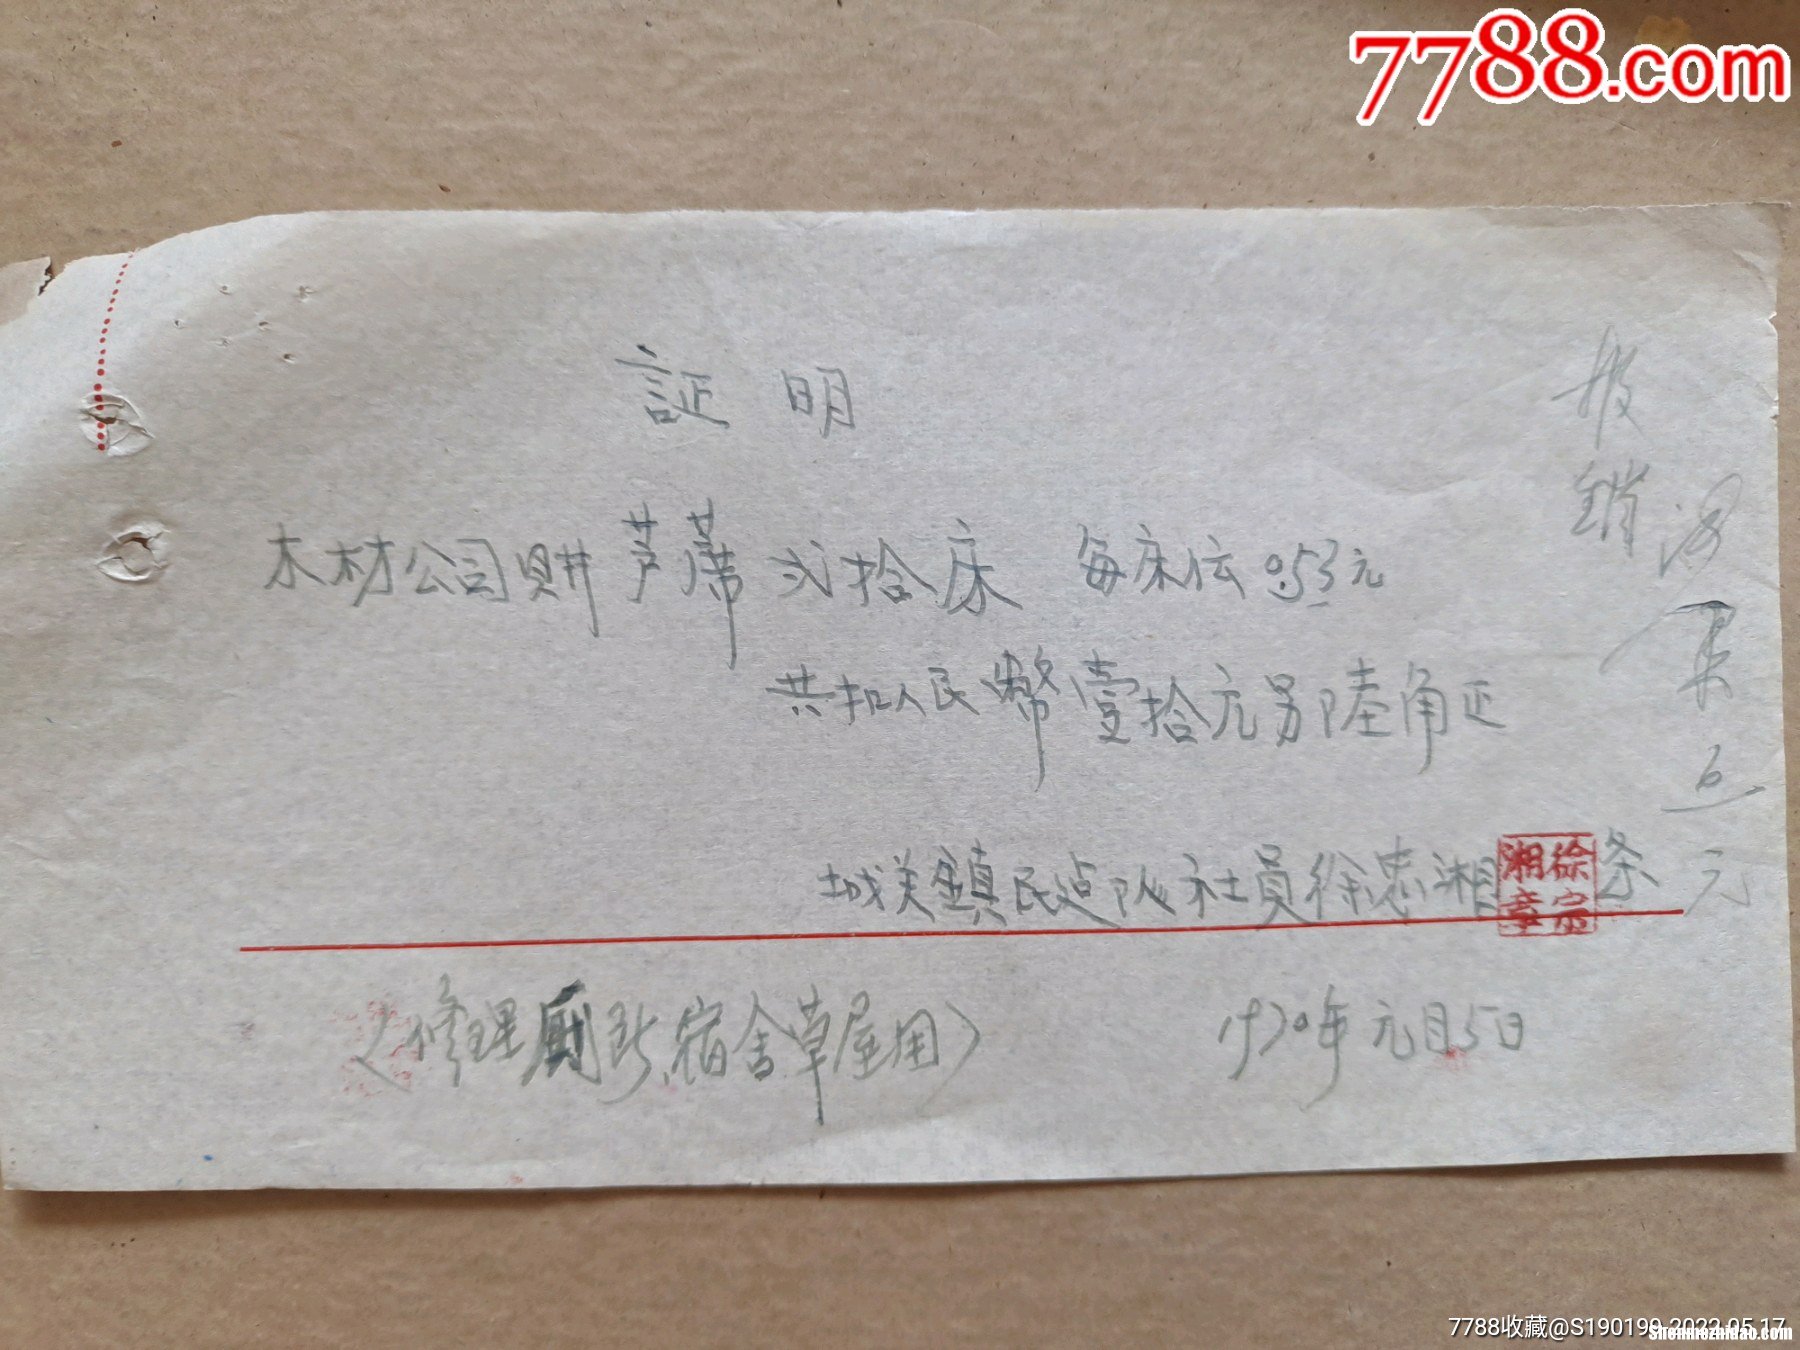 7788.com
証明
木材公司购芦席弍拾床 每床伝0.53元
共扣人民幣壹拾元另陸角正
城关鎮民边队社員徐忠湘 条
徐宗湘章
(修理厠所、宿舍草屋用) 1970年元月5日
报銷
元
7788收藏@S190199 2022.05.17
Shenmezhidao.com